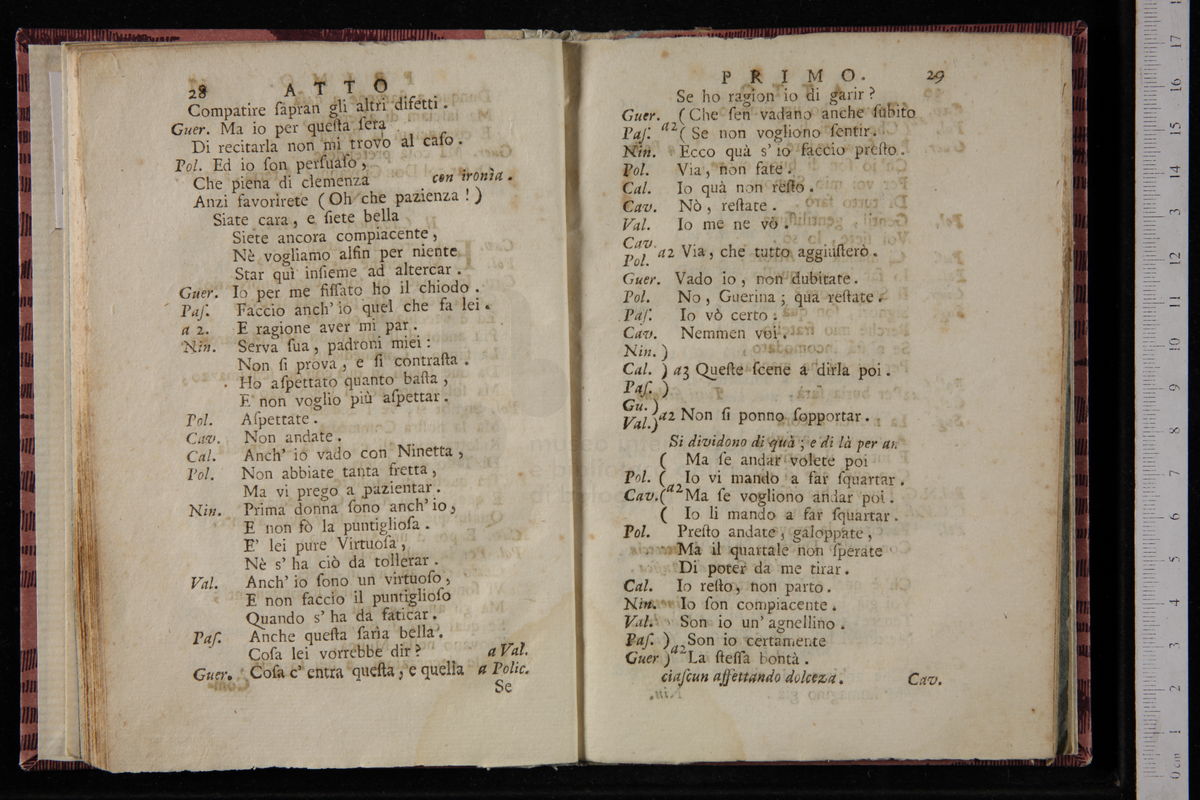 28 ATTO
Compatire ſapran gli altri difetti.
Guer. Ma io per queſta ſera
Di recitarla non mi trovo al caſo.
Pol. Ed io ſon perſuaſo,
Che piena di clemenza con ironìa.
Anzi favorirete (Oh che pazienza!)
Siate cara, e ſiete bella
Siete ancora compiacente,
Nè vogliamo alfin per niente
Star quì inſieme ad altercar.
Guer. Io per me fiſſato ho il chiodo.
Paſ. Faccio anch' io quel che fa lei.
a 2. E ragione aver mi par.
Nin. Serva ſua, padroni miei:
Non ſi prova, e ſi contraſta.
Ho aſpettato quanto baſta,
E non voglio più aſpettar.
Pol. Aſpettate.
Cav. Non andate.
Cal. Anch' io vado con Ninetta,
Pol. Non abbiate tanta fretta,
Ma vi prego a pazientar.
Nin. Prima donna ſono anch' io,
E non fò la puntiglioſa.
E' lei pure Virtuoſa,
Nè s' ha ciò da tollerar.
Val. Anch' io ſono un virtuoſo,
E non faccio il puntiglioſo
Quando s' ha da faticar.
Paſ. Anche queſta ſaria bella.
Coſa lei vorrebbe dir? a Val.
Guer. Coſa c' entra queſta, e quella a Polic.
Se
PRIMO. 29
Se ho ragion io di garir?
Guer. (Che ſen vadano anche ſubito
Paſ. a2 (Se non vogliono ſentir.
Nin. Ecco quà s' io faccio preſto.
Pol. Via, non fate.
Cal. Io quà non reſto.
Cav. Nò, reſtate.
Val. Io me ne vò.
Cav.
Pol. a2 Via, che tutto aggiuſterò.
Guer. Vado io, non dubitate.
Pol. No, Guerina; quà reſtate.
Paſ. Io vò certo.
Cav. Nemmen voi.
Nin. )
Cal. ) a3 Queſte ſcene a dirla poi.
Paſ. )
Gu. )
Val.) a2 Non ſi ponno ſopportar.
Si dividono di quà; e di là per an
( Ma ſe andar volete poi
Pol. ( Io vi mando a far ſquartar.
Cav.( a2 Ma ſe vogliono andar poi.
( Io li mando a far ſquartar.
Pol. Preſto andate, galoppate,
Ma il quartale non ſperate
Di poter da me tirar.
Cal. Io reſto, non parto.
Nin. Io ſon compiacente.
Val. Son io un' agnellino.
Paſ. ) Son io certamente
Guer ) a2 La ſteſſa bontà.
ciaſcun affettando dolceza. Cav.